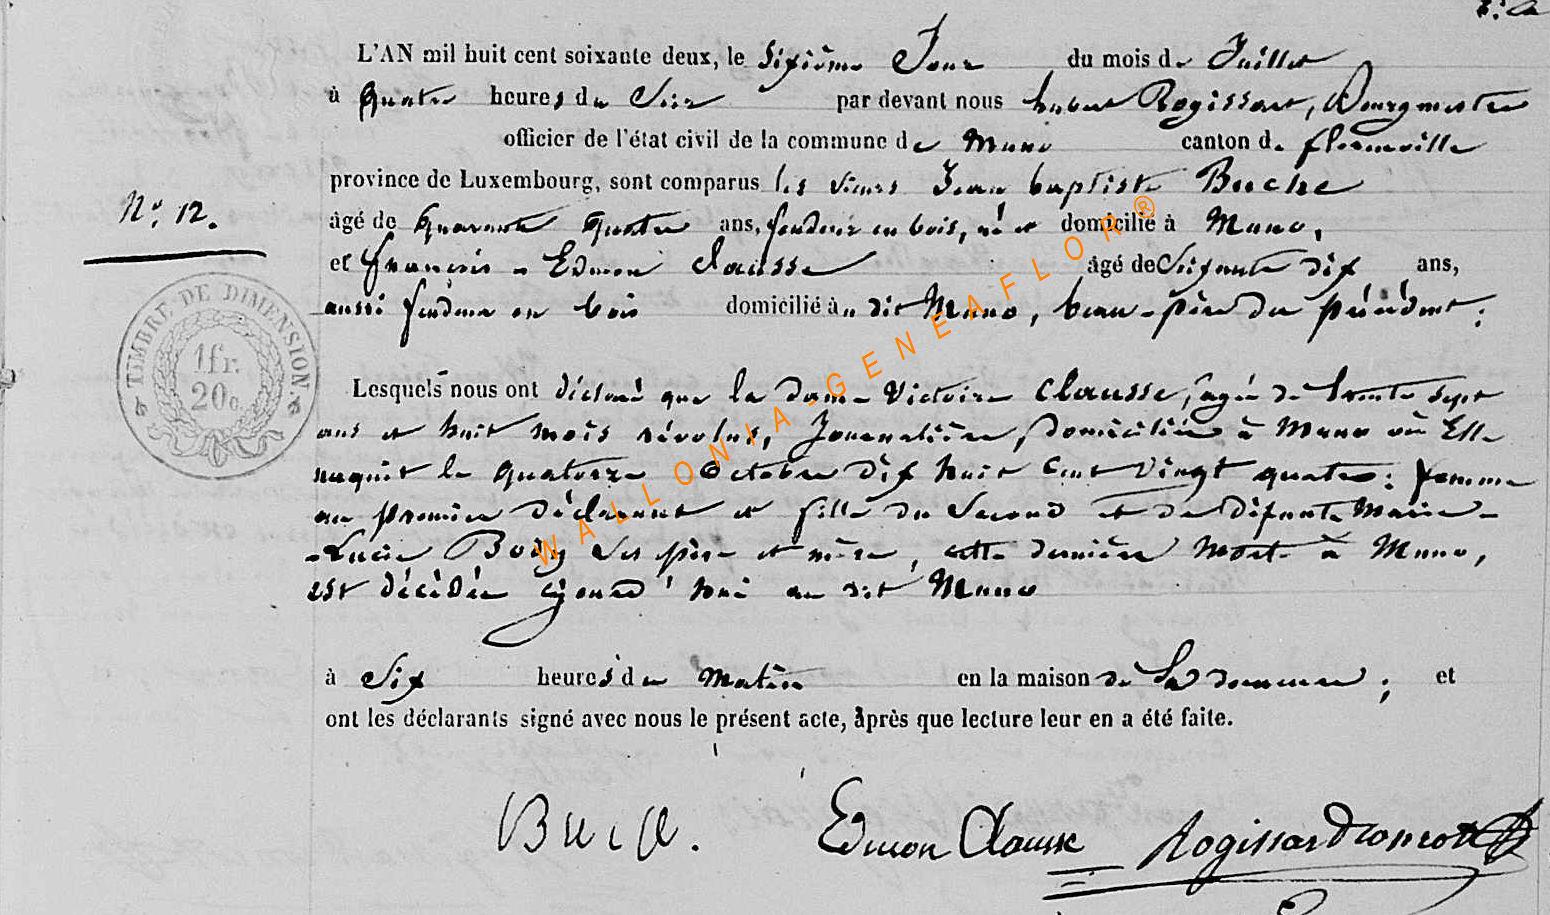 L'AN mil huit cent soixante deux, le sixième Jour du mois de Juillet
à Quatre heures du Soir par devant nous hubert Rogissart, Bourgmestre
officier de l'état civil de la commune de Muno canton de florenville
province de Luxembourg, sont comparus les sieurs Jean baptiste Buche
N° 12.
âgé de Quarante Quatre ans, fendeur en bois, né et domicilié à Muno,
et françois - Edmon Clausse âgé de Soixante dix ans,
aussi fendeur en bois domicilié au dit Muno, beau-père du précédent;
Lesquels nous ont déclaré que la dame Victoire Clausse, agée de trente sept
ans et huit mois révolus, Journalière, Domiciliée à Muno où Elle
naquit le quatorze Octobre dix huit cent vingt quatre; femme
au premier déclarant et fille du Second et de Défunte Marie-
-Lucie Ses père et mère, cette dernière morte à Muno,
est décédée cejourd'hui au dit Muno
à Six heures du Matin en la maison de Sa demeure; et
ont les déclarants signé avec nous le présent acte, après que lecture leur en a été faite.
TIMBRE DE DIMENSION.
1fr.
20c.
WALLONIA-GENEAFLOR®
Edmon Clausse